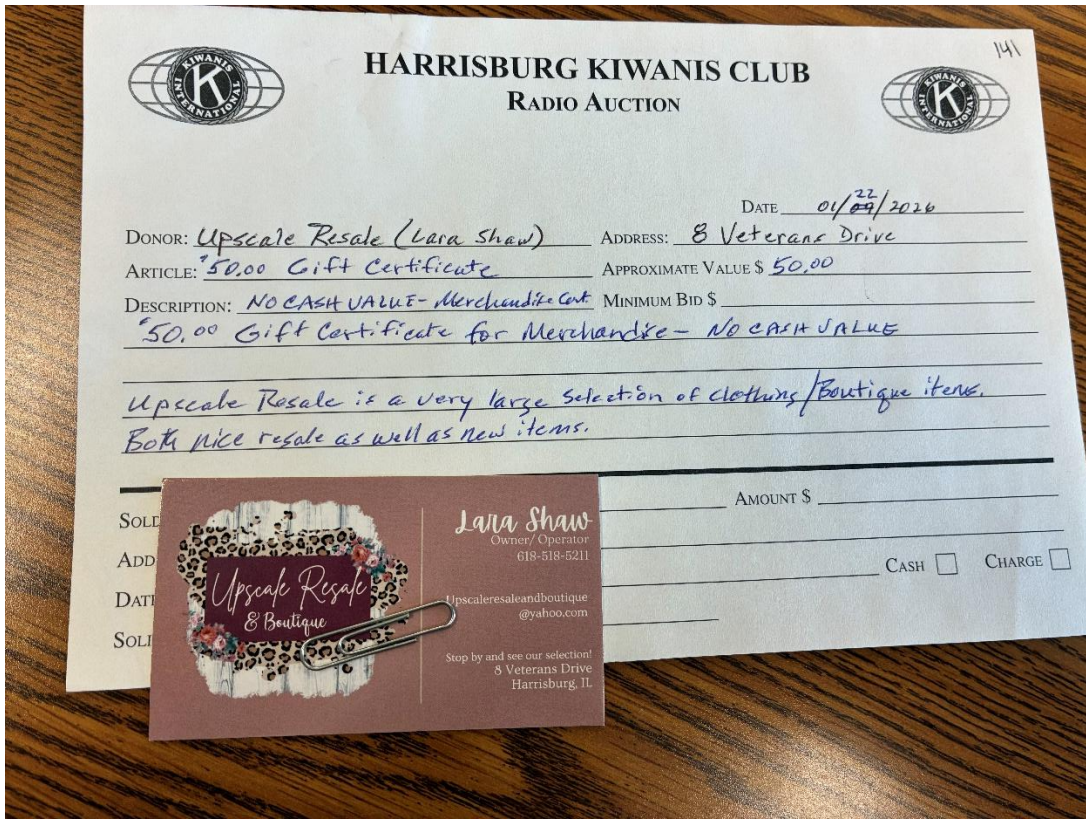 141
KIWANIS INTERNATIONAL K
HARRISBURG KIWANIS CLUB
KIWANIS INTERNATIONAL K
RADIO AUCTION
DATE 01/09/2026
22
DONOR: Upscale Resale (Lara Shaw) ADDRESS: 8 Veterans Drive
ARTICLE: $50.00 Gift Certificate APPROXIMATE VALUE $ 50.00
DESCRIPTION: NO CASH VALUE - Merchandise Cert MINIMUM BID $
$50.00 Gift Certificate for Merchandise - NO CASH VALUE
Upscale Resale is a very large Selection of clothing/Boutique items.
Both nice resale as well as new items.
SOLD AMOUNT $
ADD
CASH CHARGE
DATE
SOLI
Upscale Resale
& Boutique
Lara Shaw
Owner/ Operator
618-518-5211
Upscaleresaleandboutique
@yahoo.com
Stop by and see our selection!
8 Veterans Drive
Harrisburg, IL